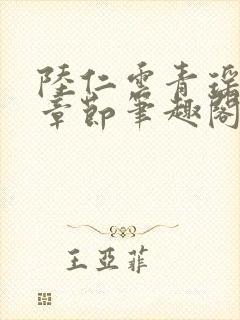 陸仁雲青瑤
章節筆趣閣
王亞菲